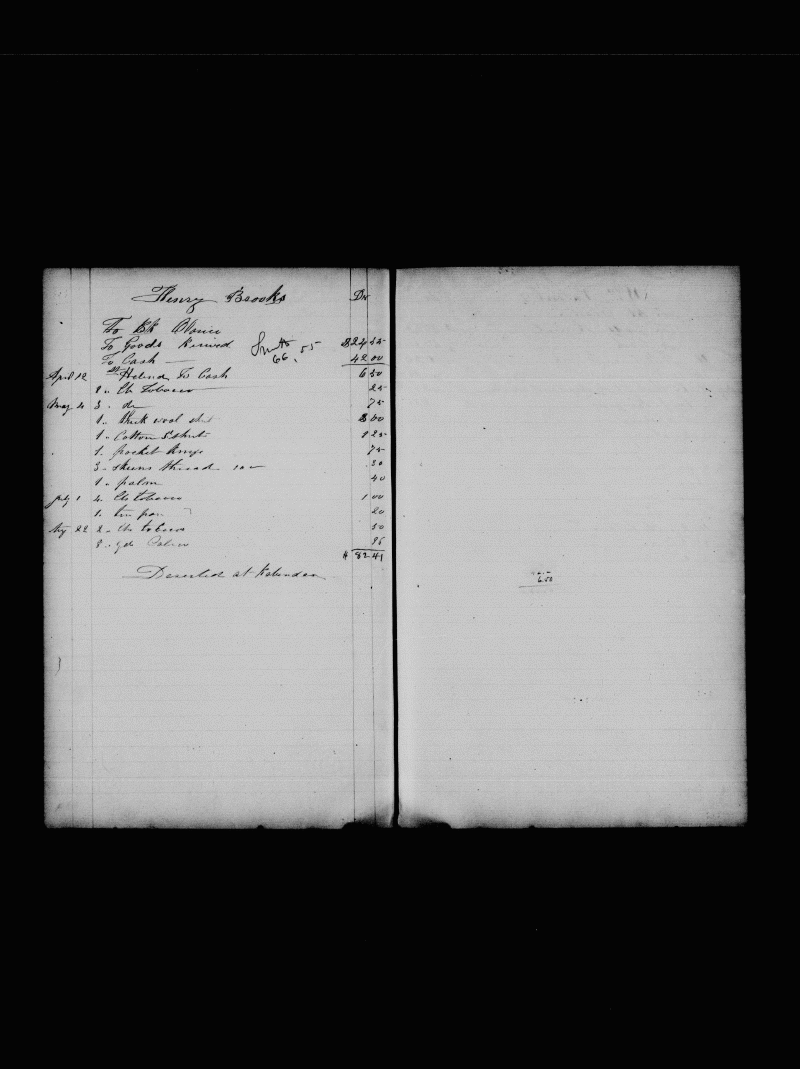 Henry Brooks Dr
To BK Clarin
To Goods Received Smith $24 55
To Cash — 66.55 42 00
April 12 St Helena To Cash 6 50
1 " lb Tobacco 25
May 4 3 " do 75
1 " thick wool shirt 3 00
1 " Cotton Shirt 1 25
1 " pocket knife 75
3 " skeins thread 10c 30
1 " palm 40
July 1 4 " lbs tobacco 1 00
1 " tin pan 20
Aug 22 2 " lbs tobacco 50
8 " yds Calico 96
$ 82 41
Deserted at
6.50